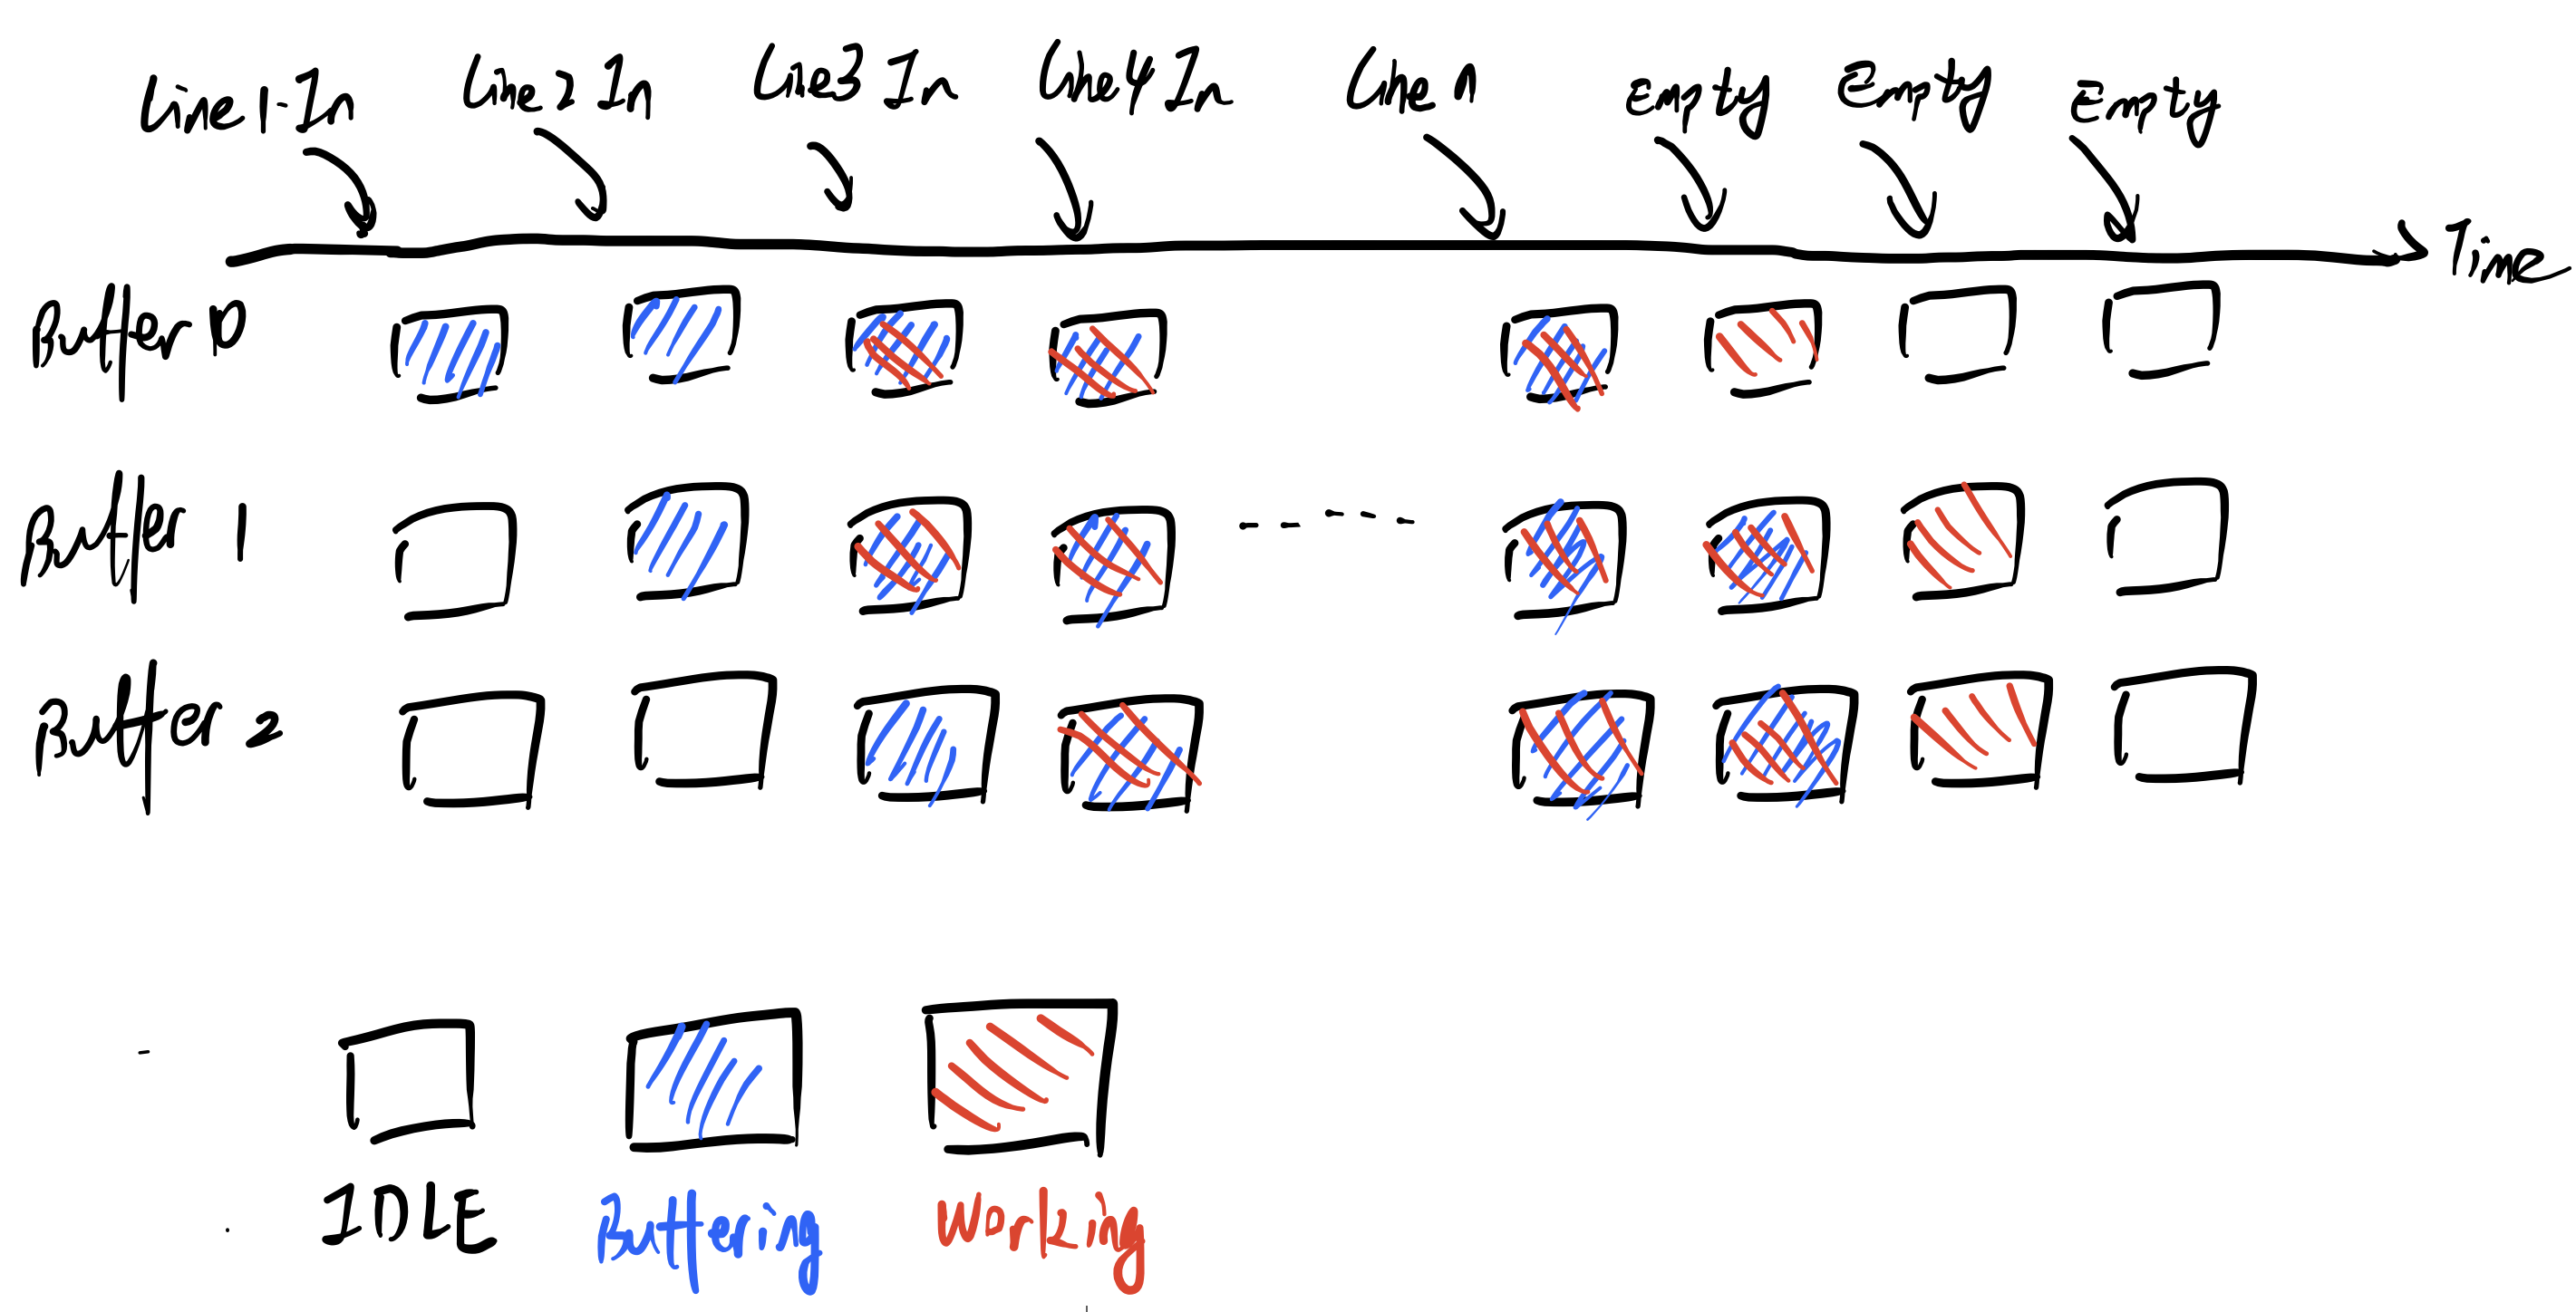 Line 1-In
Line 2 In
Line 3 In
Line 4 In
Line n
Empty
Empty
Empty
Time
Buffer 0
Buffer 1
Buffer 2
IDLE
Buffering
Working